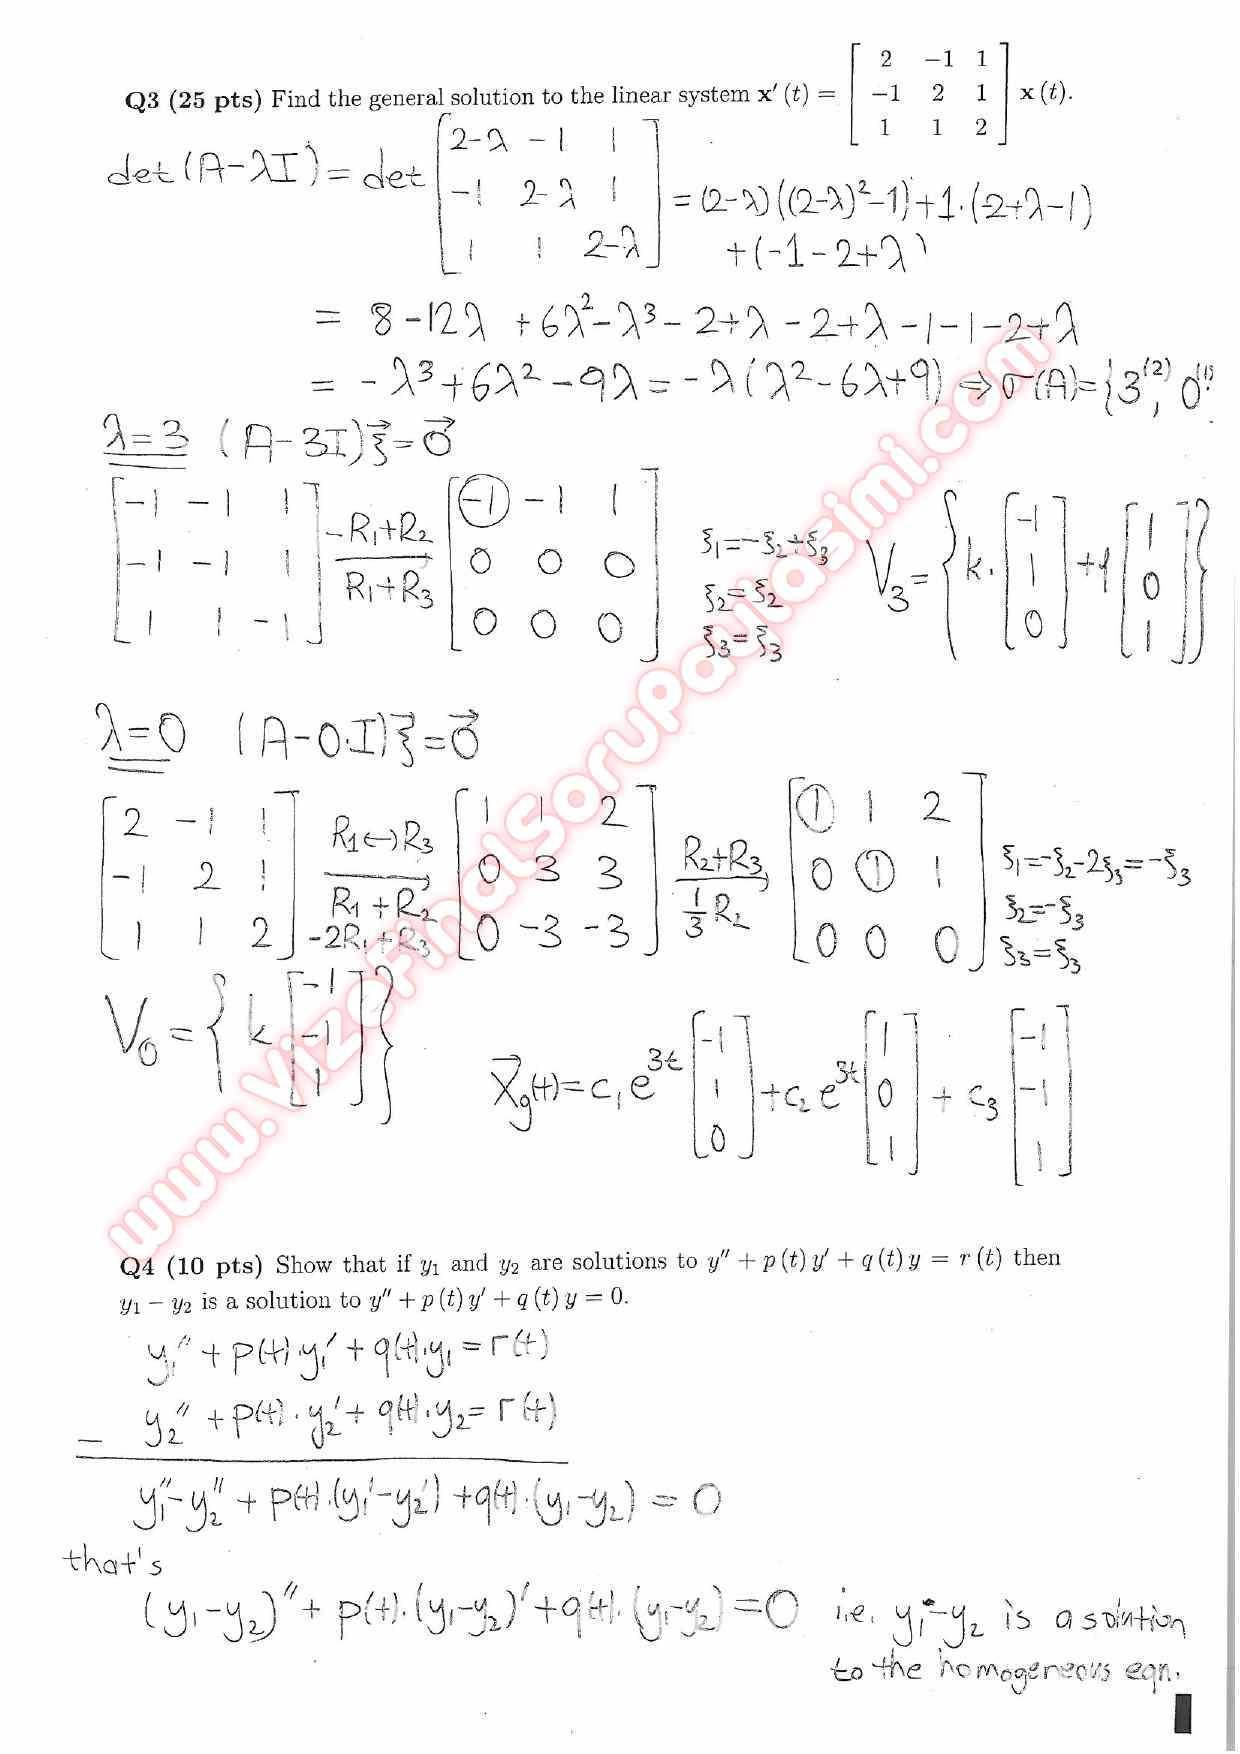 Q3 (25 pts) Find the general solution to the linear system x′ (t) = [ 2 −1 1 ; −1 2 1 ; 1 1 2 ] x (t).
det (A-λI) = det [ 2-λ -1 1 ; -1 2-λ 1 ; 1 1 2-λ ] = (2-λ)((2-λ)²-1)+1.(-2+λ-1)
+(-1-2+λ)
= 8-12λ +6λ²-λ³-2+λ-2+λ-1-1-2+λ
= -λ³+6λ²-9λ = -λ(λ²-6λ+9) ⇒ σ(A)={3⁽²⁾, 0⁽¹⁾}
λ=3 (A-3I)ξ⃗=0⃗
[ -1 -1 1 ; -1 -1 1 ; 1 1 -1 ] -R₁+R₂ / R₁+R₃ [ -1 -1 1 ; 0 0 0 ; 0 0 0 ] ξ₁=-ξ₂+ξ₃ ξ₂=ξ₂ ξ₃=ξ₃ V₃ = { k. [ -1 ; 1 ; 0 ] +t [ 1 ; 0 ; 1 ] }
λ=0 (A-0.I)ξ⃗=0⃗
[ 2 -1 1 ; -1 2 1 ; 1 1 2 ] R₁↔R₃ / R₁+R₂ -2R₁+R₃ [ 1 1 2 ; 0 3 3 ; 0 -3 -3 ] R₂+R₃ / 1/3 R₂ [ 1 1 2 ; 0 1 1 ; 0 0 0 ] ξ₁=-ξ₂-2ξ₃=-ξ₃ ξ₂=-ξ₃ ξ₃=ξ₃
V₀ = { k [ -1 ; -1 ; 1 ] } X⃗g(t)= c₁ e^3t [ -1 ; 1 ; 0 ] +c₂ e^3t [ 1 ; 0 ; 1 ] + c₃ [ -1 ; -1 ; 1 ]
www.VizeFinalSoruPaylasimi.com
Q4 (10 pts) Show that if y₁ and y₂ are solutions to y″ + p (t) y′ + q (t) y = r (t) then
y₁ − y₂ is a solution to y″ + p (t) y′ + q (t) y = 0.
y₁″ + p(t).y₁′ + q(t).y₁ = r(t)
− y₂″ + p(t).y₂′ + q(t).y₂ = r(t)
y₁″-y₂″ + p(t).(y₁′-y₂′) +q(t).(y₁-y₂) = 0
that's
(y₁-y₂)″ + p(t).(y₁-y₂)′ +q(t).(y₁-y₂) =0 i.e. y₁-y₂ is a solution
to the homogeneous eqn.